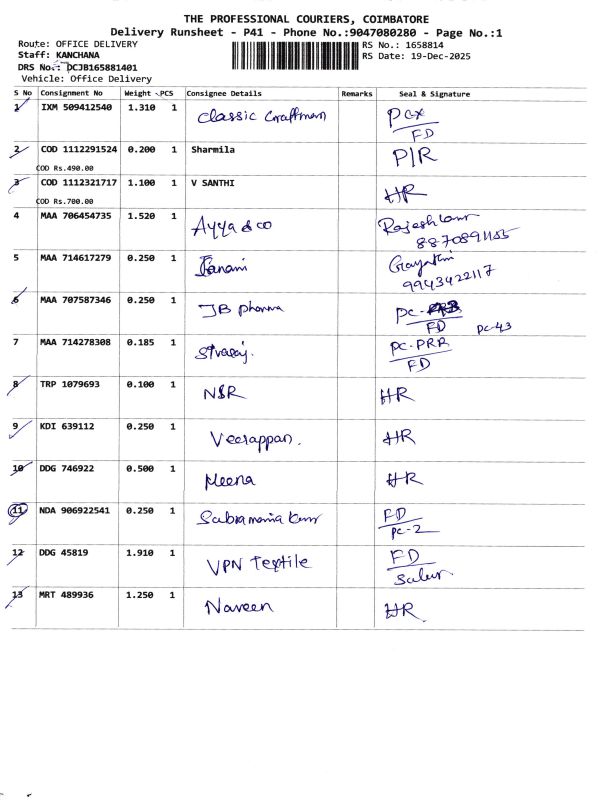 THE PROFESSIONAL COURIERS, COIMBATORE
Delivery Runsheet - P41 - Phone No.:9047080280 - Page No.:1
Route: OFFICE DELIVERY RS No.: 1658814
Staff: KANCHANA RS Date: 19-Dec-2025
DRS No.: DCJB165881401
Vehicle: Office Delivery
S No Consignment No Weight PCS Consignee Details Remarks Seal & Signature
1 IXM 509412540 1.310 1 Classic FD
2 COD 1112291524 0.200 1 Sharmila P/R
COD Rs.490.00
3 COD 1112321717 1.100 1 V SANTHI HR
COD Rs.700.00
4 MAA 706454735 1.520 1 Ayya & co
5 MAA 714617279 0.250 1 Gayathri
9943422117
6 MAA 707587346 0.250 1 JB pharma PC-
FD PC-43
7 MAA 714278308 0.185 1 PC-PRR
FD
8 TRP 1079693 0.100 1 NSR HR
9 KDI 639112 0.250 1 Veerappan. HR
10 DDG 746922 0.500 1 Meena HR
11 NDA 906922541 0.250 1 FD
PC-2
12 DDG 45819 1.910 1 VPN Textile FD
Sulur
13 MRT 489936 1.250 1 Naveen HR.